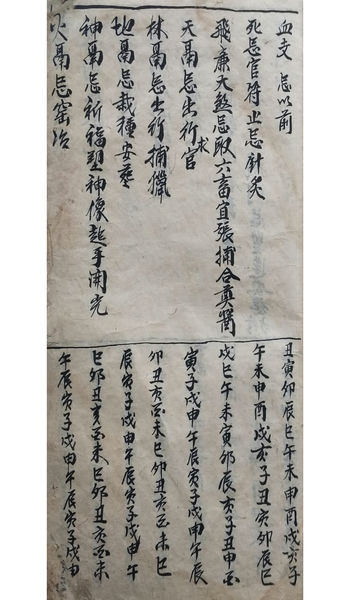 血支 忌以前
死忌官符止忌針灸
飛廉大煞忌取六畜宜張捕合
天鬲忌出行求官
林鬲忌出行捕獵
地鬲忌栽種安葬
神鬲忌祈福塑神像起手開光
火鬲忌窑冶
丑寅卯辰巳午未申酉戌亥子
午未申酉戌亥子丑寅卯辰巳
戌巳午未寅卯辰亥子丑申酉
寅子戌申午辰寅子戌申午辰
卯丑亥酉未巳卯丑亥酉未巳
辰寅子戌申午辰寅子戌申午
巳卯丑亥酉未巳卯丑亥酉未
午辰寅子戌申午辰寅子戌申